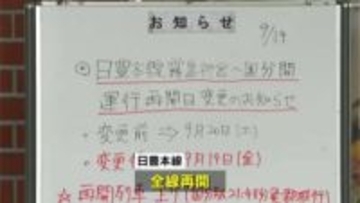 お知らせ
9/19
日豊本線霧島神宮〜国分間
運行再開日変更のお知らせ
・変更前 ⇒ 9月20日(土)
・変更 9月19日(金)
日豊本線
全線再開
☆再開列車 上り